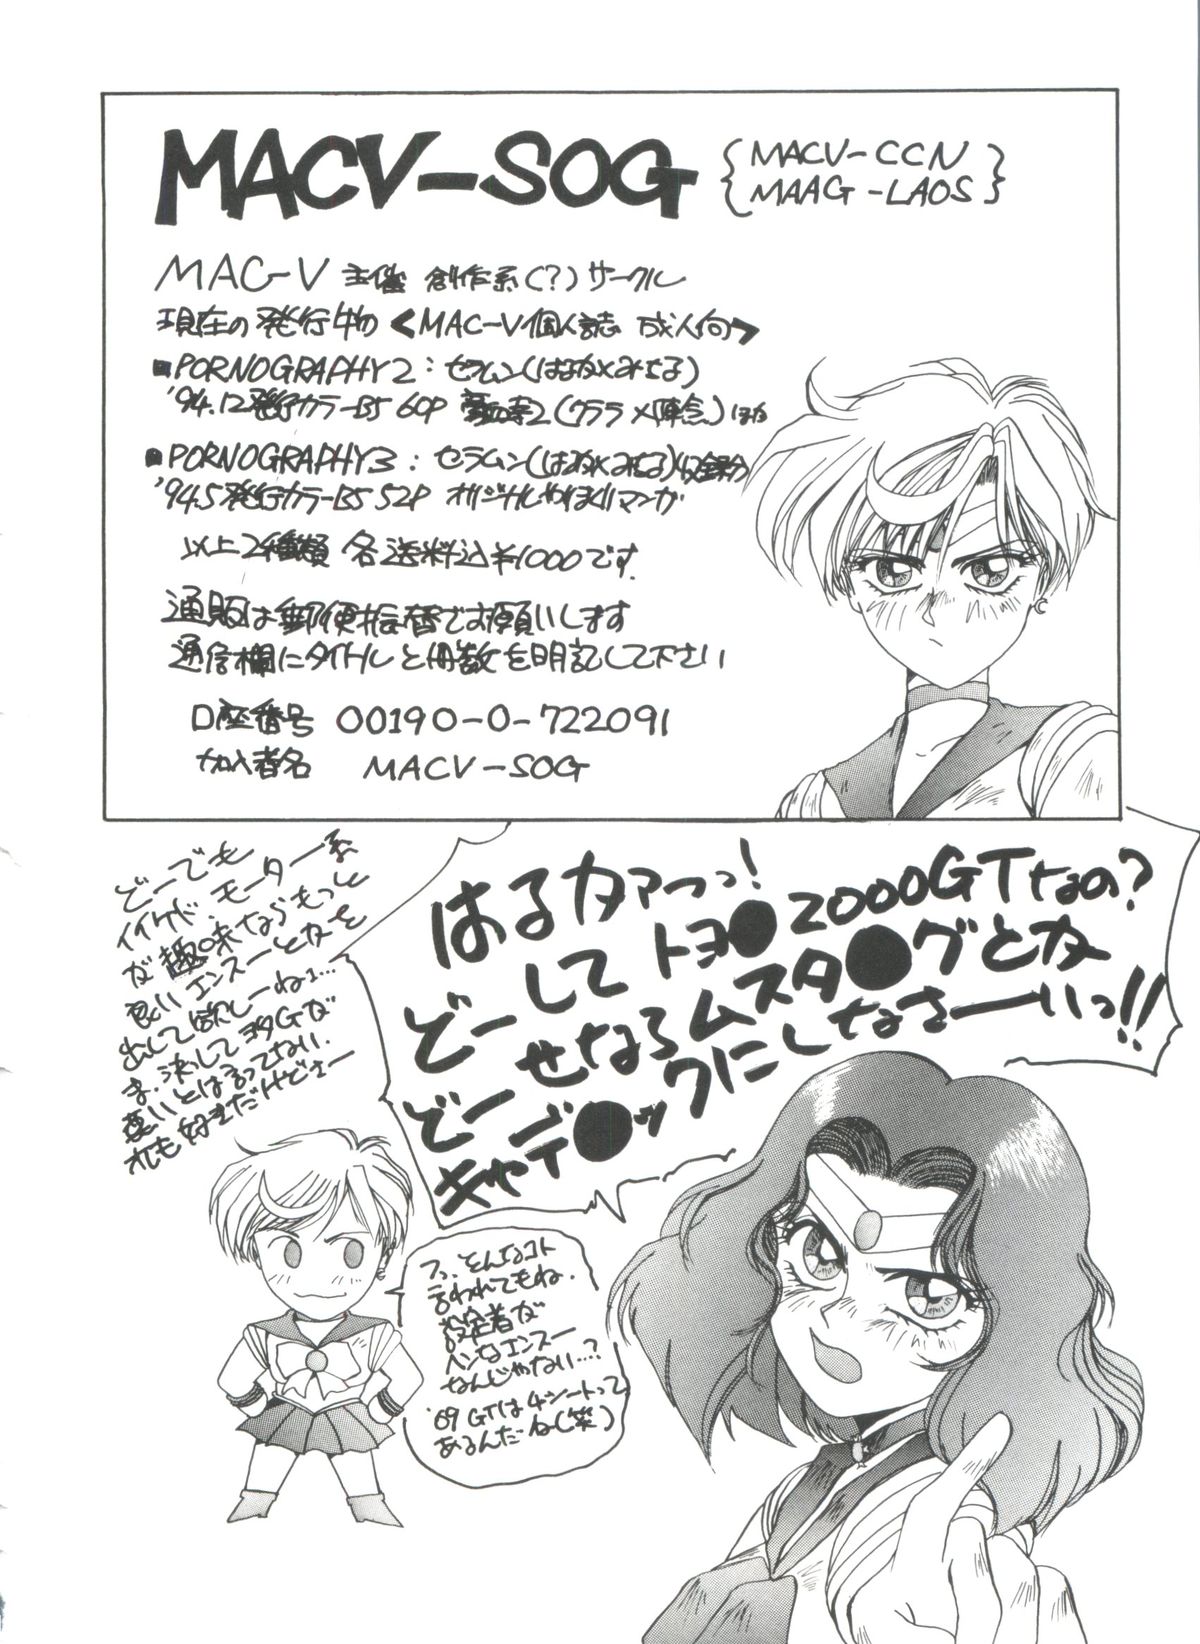 MACV-SOG
MACV-CCN
MAAG-LAOS
MAC-V 主催 創作系(?)サークル
現在の発行物 <MAC-V個人誌 成人向>
■PORNOGRAPHY2：セラムン(はるか×みちる)
'94.12発行カラーB5 60P
■PORNOGRAPHY3：セラムン(はるか×みちる)収録
'94.5発行カラーB5 52P オリジナル マンガ
以上2種類 各送料込¥1000です.
通販は郵便振替でお願いします
通信欄にタイトルと冊数を明記して下さい
口座番号 00190-0-722091
加入者名 MACV-SOG
はるカァーっっ!
どーしてトヨ●2000GTなの?
どーせならムスタ●グとか
キャデ●ックにしなさーいっ!!
どーでも
イイケド、モーター系
が趣味ならもっと
良いエンスーとかを
出して欲しーねェ…
ま.決してヨタGが
悪いとは言ってない.
オレも好きだけどさー
フッ、そんなコト
言われてもね.
設定者が
ヘンなエンスー
なんじゃない…?
'69 GTは4シートって
あるんだね(笑)